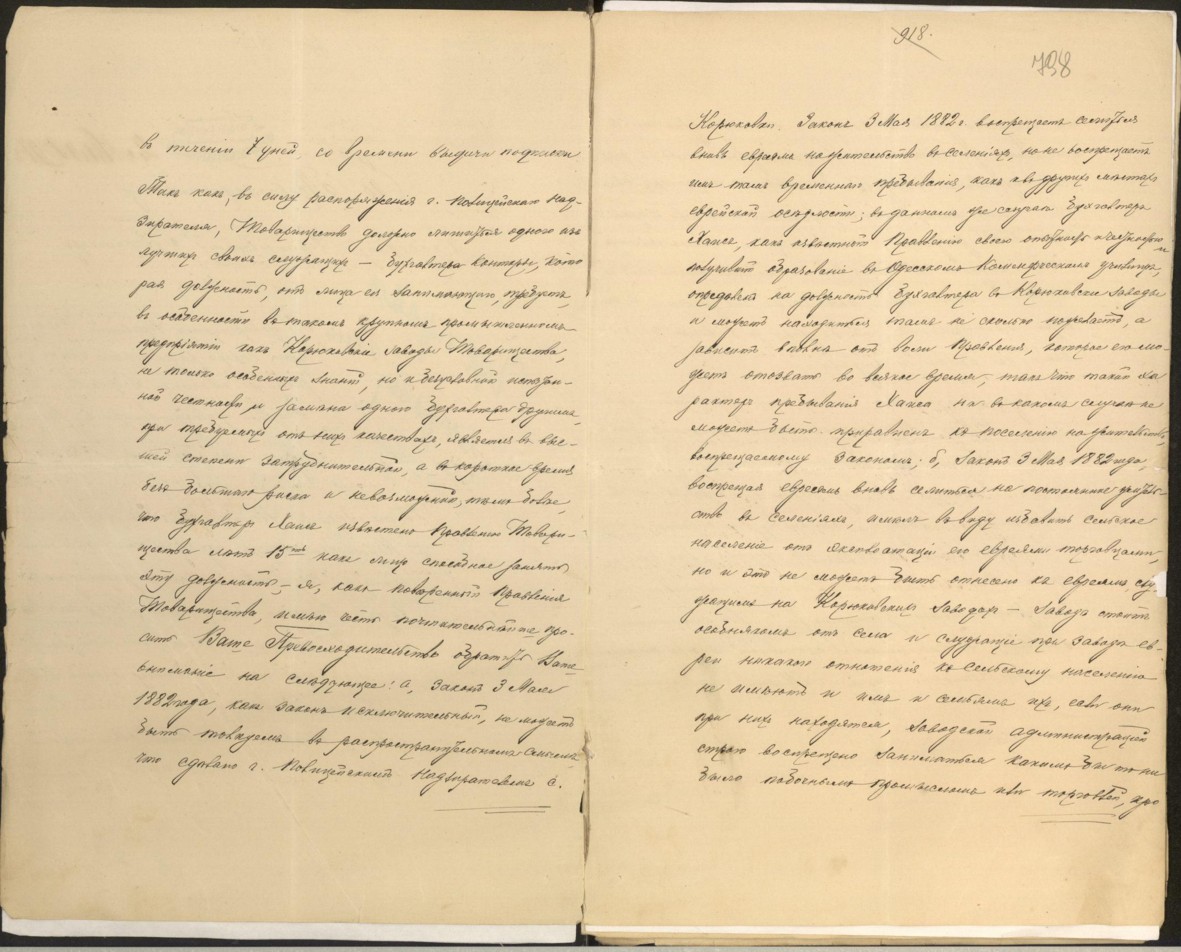 въ теченіи 7 дней, со времени выдачи подписки
Такъ какъ, въ силу распоряженія г. Полицейскаго Над-
зирателя, Товарищество должно лишиться одного изъ
лучшихъ своихъ служащихъ – бухгалтера конторы, кото
рая должность, отъ лица ея занимающаго, требуетъ,
въ особенности въ такомъ крупномъ промышленномъ
предпріятіи какъ Корюковскіе заводы Товарищества,
не только особенныхъ знаній, но и безусловной испытан-
ной честности и замѣна одного бухгалтера другимъ,
при требуемыхъ отъ нихъ качествахъ, является въ выс-
шей степени затруднительной, а въ короткое время
безъ большаго риска и невозможной, тѣмъ более,
что бухгалтеръ Хаисъ извѣстенъ Правленію Товари-
щества лѣтъ 15ть какъ лицо способное занять
эту должность, – я, какъ повѣренный Правленія
Товарищества, имѣю честь почтительнѣйше про-
сить Ваше Превосходительство обратить Ваше
вниманіе на слѣдующее: а, законъ 3 Мая
1882 года, какъ законъ исключительный, не можетъ
быть толкуемъ въ распространительномъ смыслѣ,
что сдѣлано г. Полицейскимъ Надзирателемъ с.
918.
798
Корюковки. Законъ 3 Мая 1882 г. воспрещаетъ селиться
вновь евреямъ на жительство въ селеніяхъ, но не воспрещаетъ
имъ тамъ временнаго пребыванія, какъ и въ другихъ мѣстахъ
еврейской осѣдлости; въ данномъ же случаѣ бухгалтеръ
Хаисъ, какъ извѣстный Правленію своею опытностью и честностью и
получившій образованіе въ Одесскомъ Коммерческомъ училищѣ,
опредѣленъ на должность бухгалтера въ Корюковскіе заводы
и можетъ находиться тамъ не сколько пожелаетъ, а
зависитъ вполнѣ отъ воли Правленія, которое его мо-
жетъ отозвать во всякое время, такъ что такой ха
рактеръ пребыванія Хаиса ни въ какомъ случаѣ не
можетъ быть приравненъ къ поселенію на жительство,
воспрещаемому закономъ; б, законъ 3 Мая 1882 года,
воспрещая евреямъ вновь селиться на постоянное житель-
ство въ селеніяхъ, имѣлъ въ виду избавить сельское
населеніе отъ эксплоатаціи его евреями торговцами,
но и это не можетъ быть отнесено къ евреямъ, слу
жащимъ на Корюковскихъ заводахъ – заводъ стоитъ
особнякомъ отъ села и служащіе при заводѣ ев-
реи никакого отношенія къ сельскому населенію
не имѣютъ и имъ и семьямъ ихъ, если они
при нихъ находятся, заводской администраціей
строго воспрещено заниматься какимъ бы то ни
было побочнымъ промысломъ или торговлей, кро